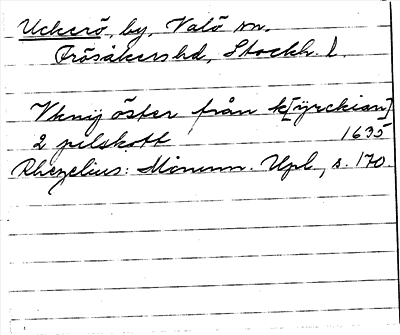 Uckerö, by, Valö sn.
Frösåkers hd, Stockh. l.
Vknij öster från k[ÿrckian]
2 pilskott 1635
Rhezelius: Monum. Upl., s. 170.